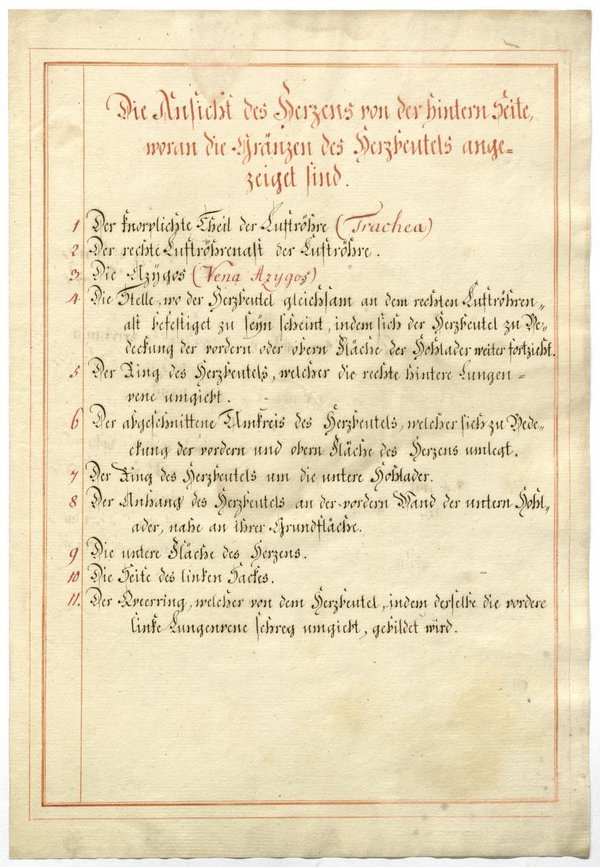 Die Ansicht des Herzens von der hintern Seite,
woran die Gränzen des Herzbeutels ange=
zeiget sind.
1 Der knorplichte Theil der Luftröhre (Trachea)
2 Der rechte Luftröhrenast der Luftröhre.
3. Die Azygos (Vena Azygos)
4. Die Stelle, wo der Herzbeutel gleichsam an dem rechten Luftröhren=
ast befestiget zu seyn scheint, indem sich der Herzbeutel zu Be=
deckung der vordern oder obern Fläche der Hohlader weiter fortzieht.
5. Der Ring des Herzbeutels, welcher die rechte hintere Lungen=
vene umgiebt.
6 Der abgeschnittene Umkreis des Herzbeutels, welcher sich zu Bede=
ckung der vordern und obern Fläche des Herzens umlegt.
7 Der Ring des Herzbeutels um die untere Hohlader.
8 Der Anhang des Herzbeutels an der vordern Wand der untern Hohl=
ader, nahe an ihrer Grundfläche.
9 Die untere Fläche des Herzens.
10 Die Seite des linken Sackes.
11. Der Qveerring, welcher von dem Herzbeutel, indem derselbe die vordere
linke Lungenvene schreg umgiebt, gebildet wird.